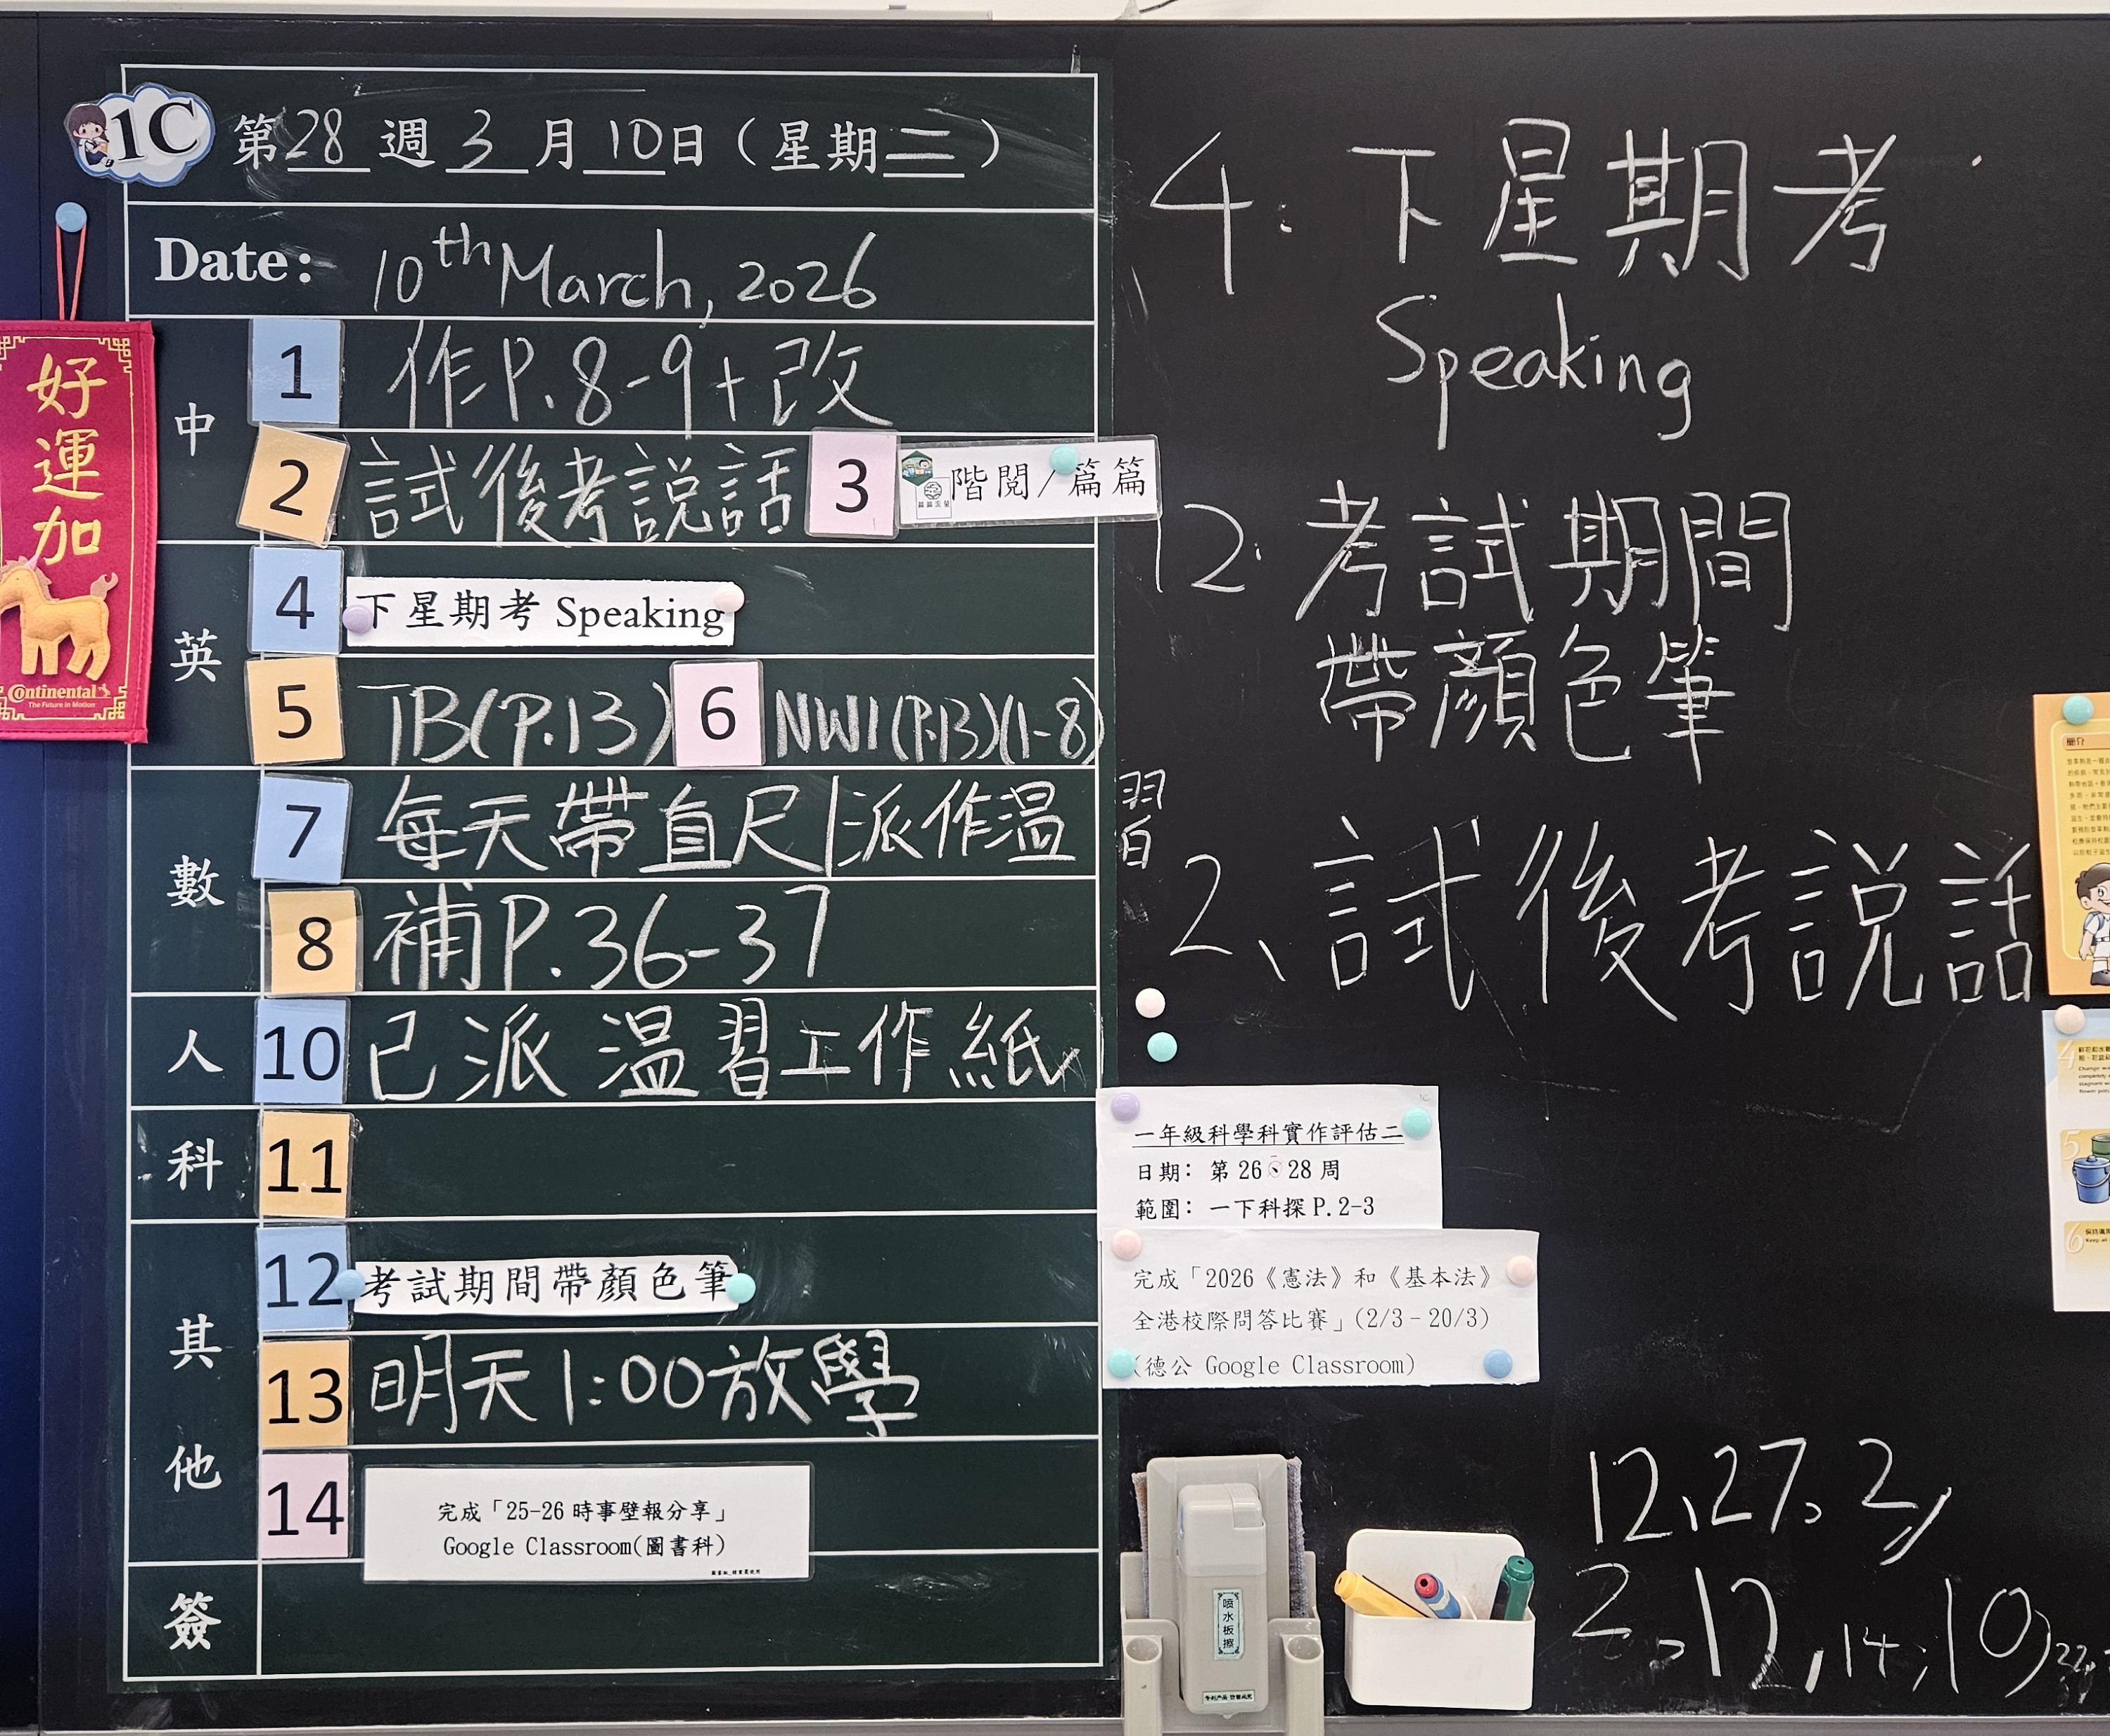 1C
第28週3月10日（星期二）
Date: 10th March, 2026
中
1 作P.8-9+改
2 試後考説話 3 階閱/篇篇
英
4 下星期考 Speaking
5 TB(P.13) 6 NW1(P.13)(1-8)
數
7 每天帶直尺|派作溫習
8 補P.36-37
人
10 已派溫習工作紙
科
11
其他
12 考試期間帶顏色筆
13 明天1:00放學
14 完成「25-26 時事壁報分享」
Google Classroom(圖書科)
簽
好運加
Continental
The Future in Motion
4. 下星期考
Speaking
12. 考試期間
帶顏色筆
2、試後考説話
一年級科學科實作評估二
日期：第 26、28 周
範圍：一下科探 P.2-3
完成「2026《憲法》和《基本法》
全港校際問答比賽」(2/3–20/3)
(德公 Google Classroom)
噴水板擦
12,27,2,
2,12,14,10,22,
簡介
4
5
6